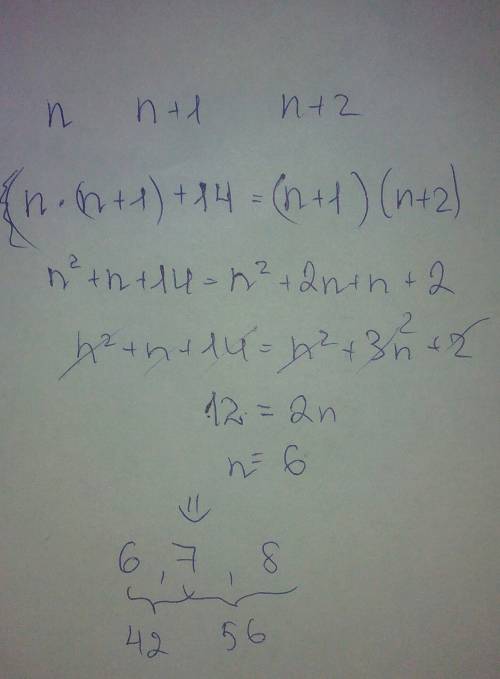 n n+1 n+2
{n·(n+1)+14=(n+1)(n+2)
n²+n+14=n²+2n+n+2
n²+n+14=n²+3n²+2
12=2n
n=6
⇓
6,7,8
42 56